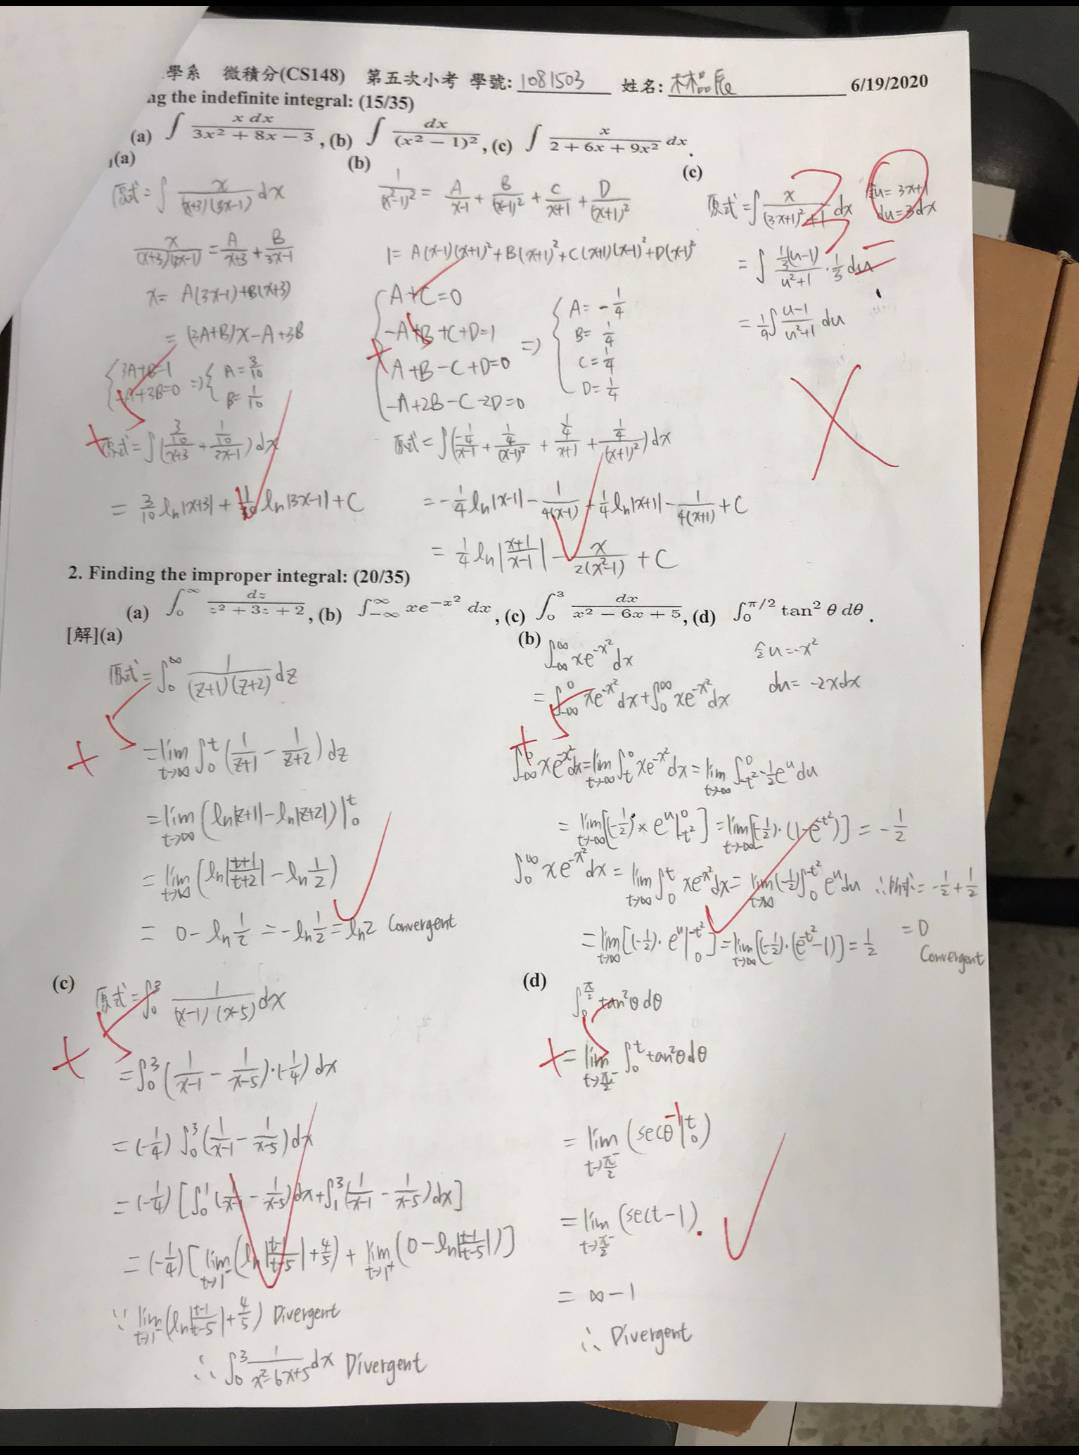 學系 微積分(CS148) 第五次小考 學號: 1081503 姓名: 林品辰 6/19/2020
ng the indefinite integral: (15/35)
(a) ∫ x dx / (3x² + 8x − 3), (b) ∫ dx / (x² − 1)², (c) ∫ x / (2 + 6x + 9x²) dx.
(a)
原式 = ∫ x/((x+3)(3x-1)) dx
x/((x+3)(3x-1)) = A/(x+3) + B/(3x-1)
x = A(3x-1)+B(x+3)
= (3A+B)x-A+3B
{3A+B=1, -A+3B=0 ⇒ {A=3/10, B=1/10
原式 = ∫((3/10)/(x+3) + (1/10)/(3x-1)) dx
= 3/10 ln|x+3| + 1/30 ln|3x-1| + C
(b)
1/(x²-1)² = A/(x-1) + B/(x-1)² + C/(x+1) + D/(x+1)²
1 = A(x-1)(x+1)²+B(x+1)²+C(x+1)(x-1)²+D(x-1)²
{A+C=0
-A+B+C+D=1
A+B-C+D=0
-A+2B-C-2D=0
⇒ {A=-1/4
B=1/4
C=1/4
D=1/4
原式 = ∫((-1/4)/(x-1) + (1/4)/(x-1)² + (1/4)/(x+1) + (1/4)/(x+1)²) dx
= -1/4 ln|x-1| - 1/(4(x-1)) + 1/4 ln|x+1| - 1/(4(x+1)) + C
= 1/4 ln|(x+1)/(x-1)| - x/(2(x²-1)) + C
(c)
原式 = ∫ x/((3x+1)²+1) dx 令u=3x+1
du=3dx
= ∫ (1/3(u-1))/(u²+1) · 1/3 du
= 1/9 ∫ (u-1)/(u²+1) du
2. Finding the improper integral: (20/35)
(a) ∫₀^∞ dz / (z² + 3z + 2), (b) ∫_{-∞}^{∞} xe^{−x²} dx, (c) ∫₀³ dx / (x² − 6x + 5), (d) ∫₀^{π/2} tan² θ dθ.
[解](a)
原式 = ∫₀^∞ 1/((z+1)(z+2)) dz
= lim t→∞ ∫₀^t (1/(z+1) - 1/(z+2)) dz
= lim t→∞ (ln|z+1|-ln|z+2|)|₀^t
= lim t→∞ (ln|(t+1)/(t+2)| - ln 1/2)
= 0 - ln 1/2 = -ln 1/2 = ln2 Convergent
(b)
∫_{-∞}^{∞} xe^{-x²} dx 令u=-x²
= ∫_{-∞}^0 xe^{-x²} dx + ∫₀^∞ xe^{-x²} dx du = -2xdx
∫_{-∞}^0 xe^{-x²} dx = lim t→∞ ∫_t^0 xe^{-x²} dx = lim t→∞ ∫_{-t²}^0 -1/2 e^u du
= lim t→∞ [(-1/2) × e^u|_{-t²}^0] = lim t→∞ [(-1/2)·(1-e^{-t²})] = -1/2
∫₀^∞ xe^{-x²} dx = lim t→∞ ∫₀^t xe^{-x²} dx = lim t→∞ (-1/2)∫₀^{-t²} e^u du ∴原式 = -1/2 + 1/2
= lim t→∞ [(-1/2)· e^u|₀^{-t²}] = lim t→∞ [(-1/2)·(e^{-t²}-1)] = 1/2 = 0
Convergent
(c) 原式 = ∫₀³ 1/((x-1)(x-5)) dx
= ∫₀³ (1/(x-1) - 1/(x-5))·(-1/4) dx
= (-1/4) ∫₀³ (1/(x-1) - 1/(x-5)) dx
= (-1/4) [∫₀¹ (1/(x-1) - 1/(x-5)) dx + ∫₁³ (1/(x-1) - 1/(x-5)) dx]
= (-1/4) [lim t→1⁻ (ln|(t-1)/(t-5)| + 4/5) + lim t→1⁺ (0 - ln|(t-1)/(t-5)|)]
∵ lim t→1⁻ (ln|(t-1)/(t-5)| + 4/5) Divergent
∴ ∫₀³ 1/(x²-6x+5) dx Divergent
(d)
∫₀^{π/2} tan²θ dθ
= lim t→π/2⁻ ∫₀^t tan²θ dθ
= lim t→π/2⁻ (secθ -1|₀^t)
= lim t→π/2⁻ (sect-1)
= ∞ - 1
∴ Divergent